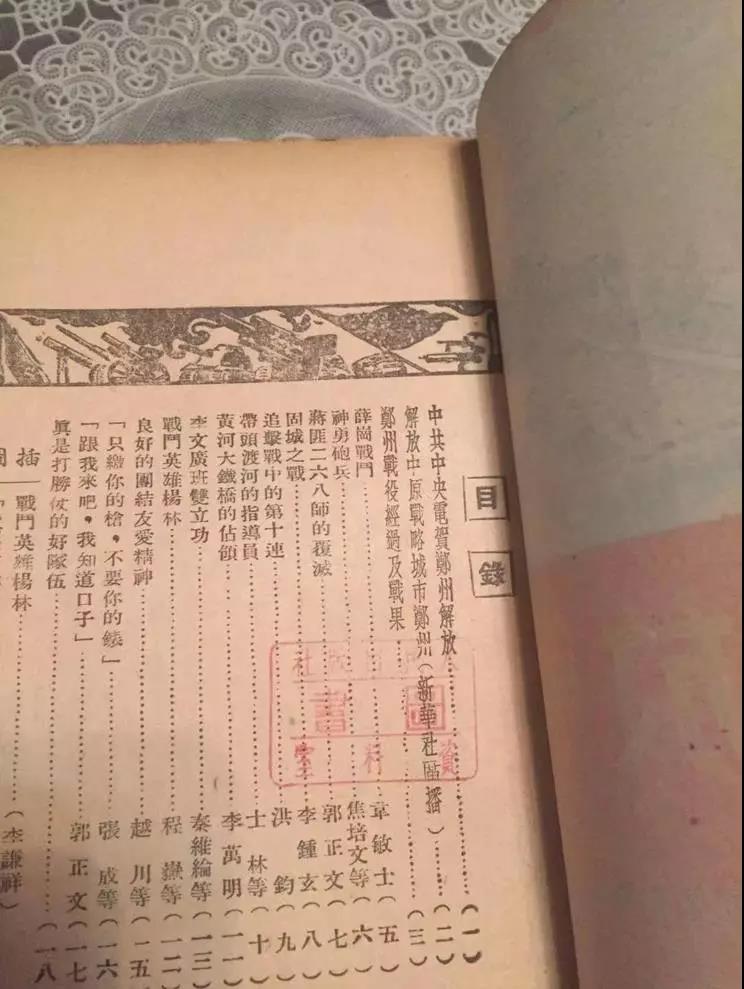 目錄
中共中央電賀鄭州解放……(一)
解放中原戰略城市鄭州(新華社區播)……(二)
鄭州戰役經過及戰果……(三)
薛崗戰鬥……章敏士(五)
神勇砲兵……焦培文等(六)
蔣匪二六八師的覆滅……郭正文(七)
固城之戰……李鍾玄(八)
追擊戰中的第十連……洪鈞(九)
帶頭渡河的指導員……士林等(十)
黃河大鐵橋的佔領……李萬明(一一)
李文廣班雙立功……秦維綸等(一三)
戰鬥英雄楊林……程嶽等(一二)
良好的團結友愛精神……越川等(一五)
「只繳你的槍,不要你的錶」……張成等(一六)
「跟我來吧,我知道口子」……郭正文(一七)
眞是打勝仗的好隊伍……(一八)
插
戰鬥英雄楊林……(李謙祥)
社
圖書
資料室